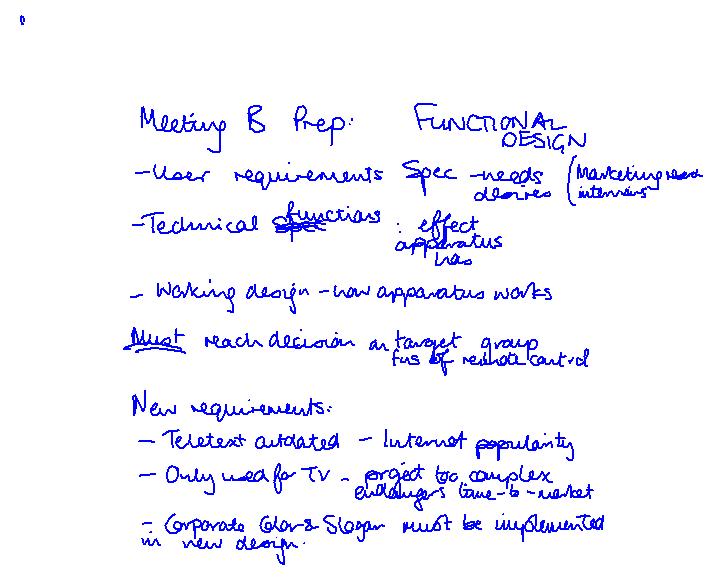 Meeting B Prep: FUNCTIONAL
DESIGN
- User requirements Spec - needs (Marketing
desires interviews
- Technical functions : effect
apparatus
has
- Working design - how apparatus works
Must reach decision on target group
fns of remote control
New requirements:
- Teletext outdated - Internet popularity
- Only used for TV - project too complex
endangers time-to-market
- Corporate Color & Slogan must be implemented
in new design.